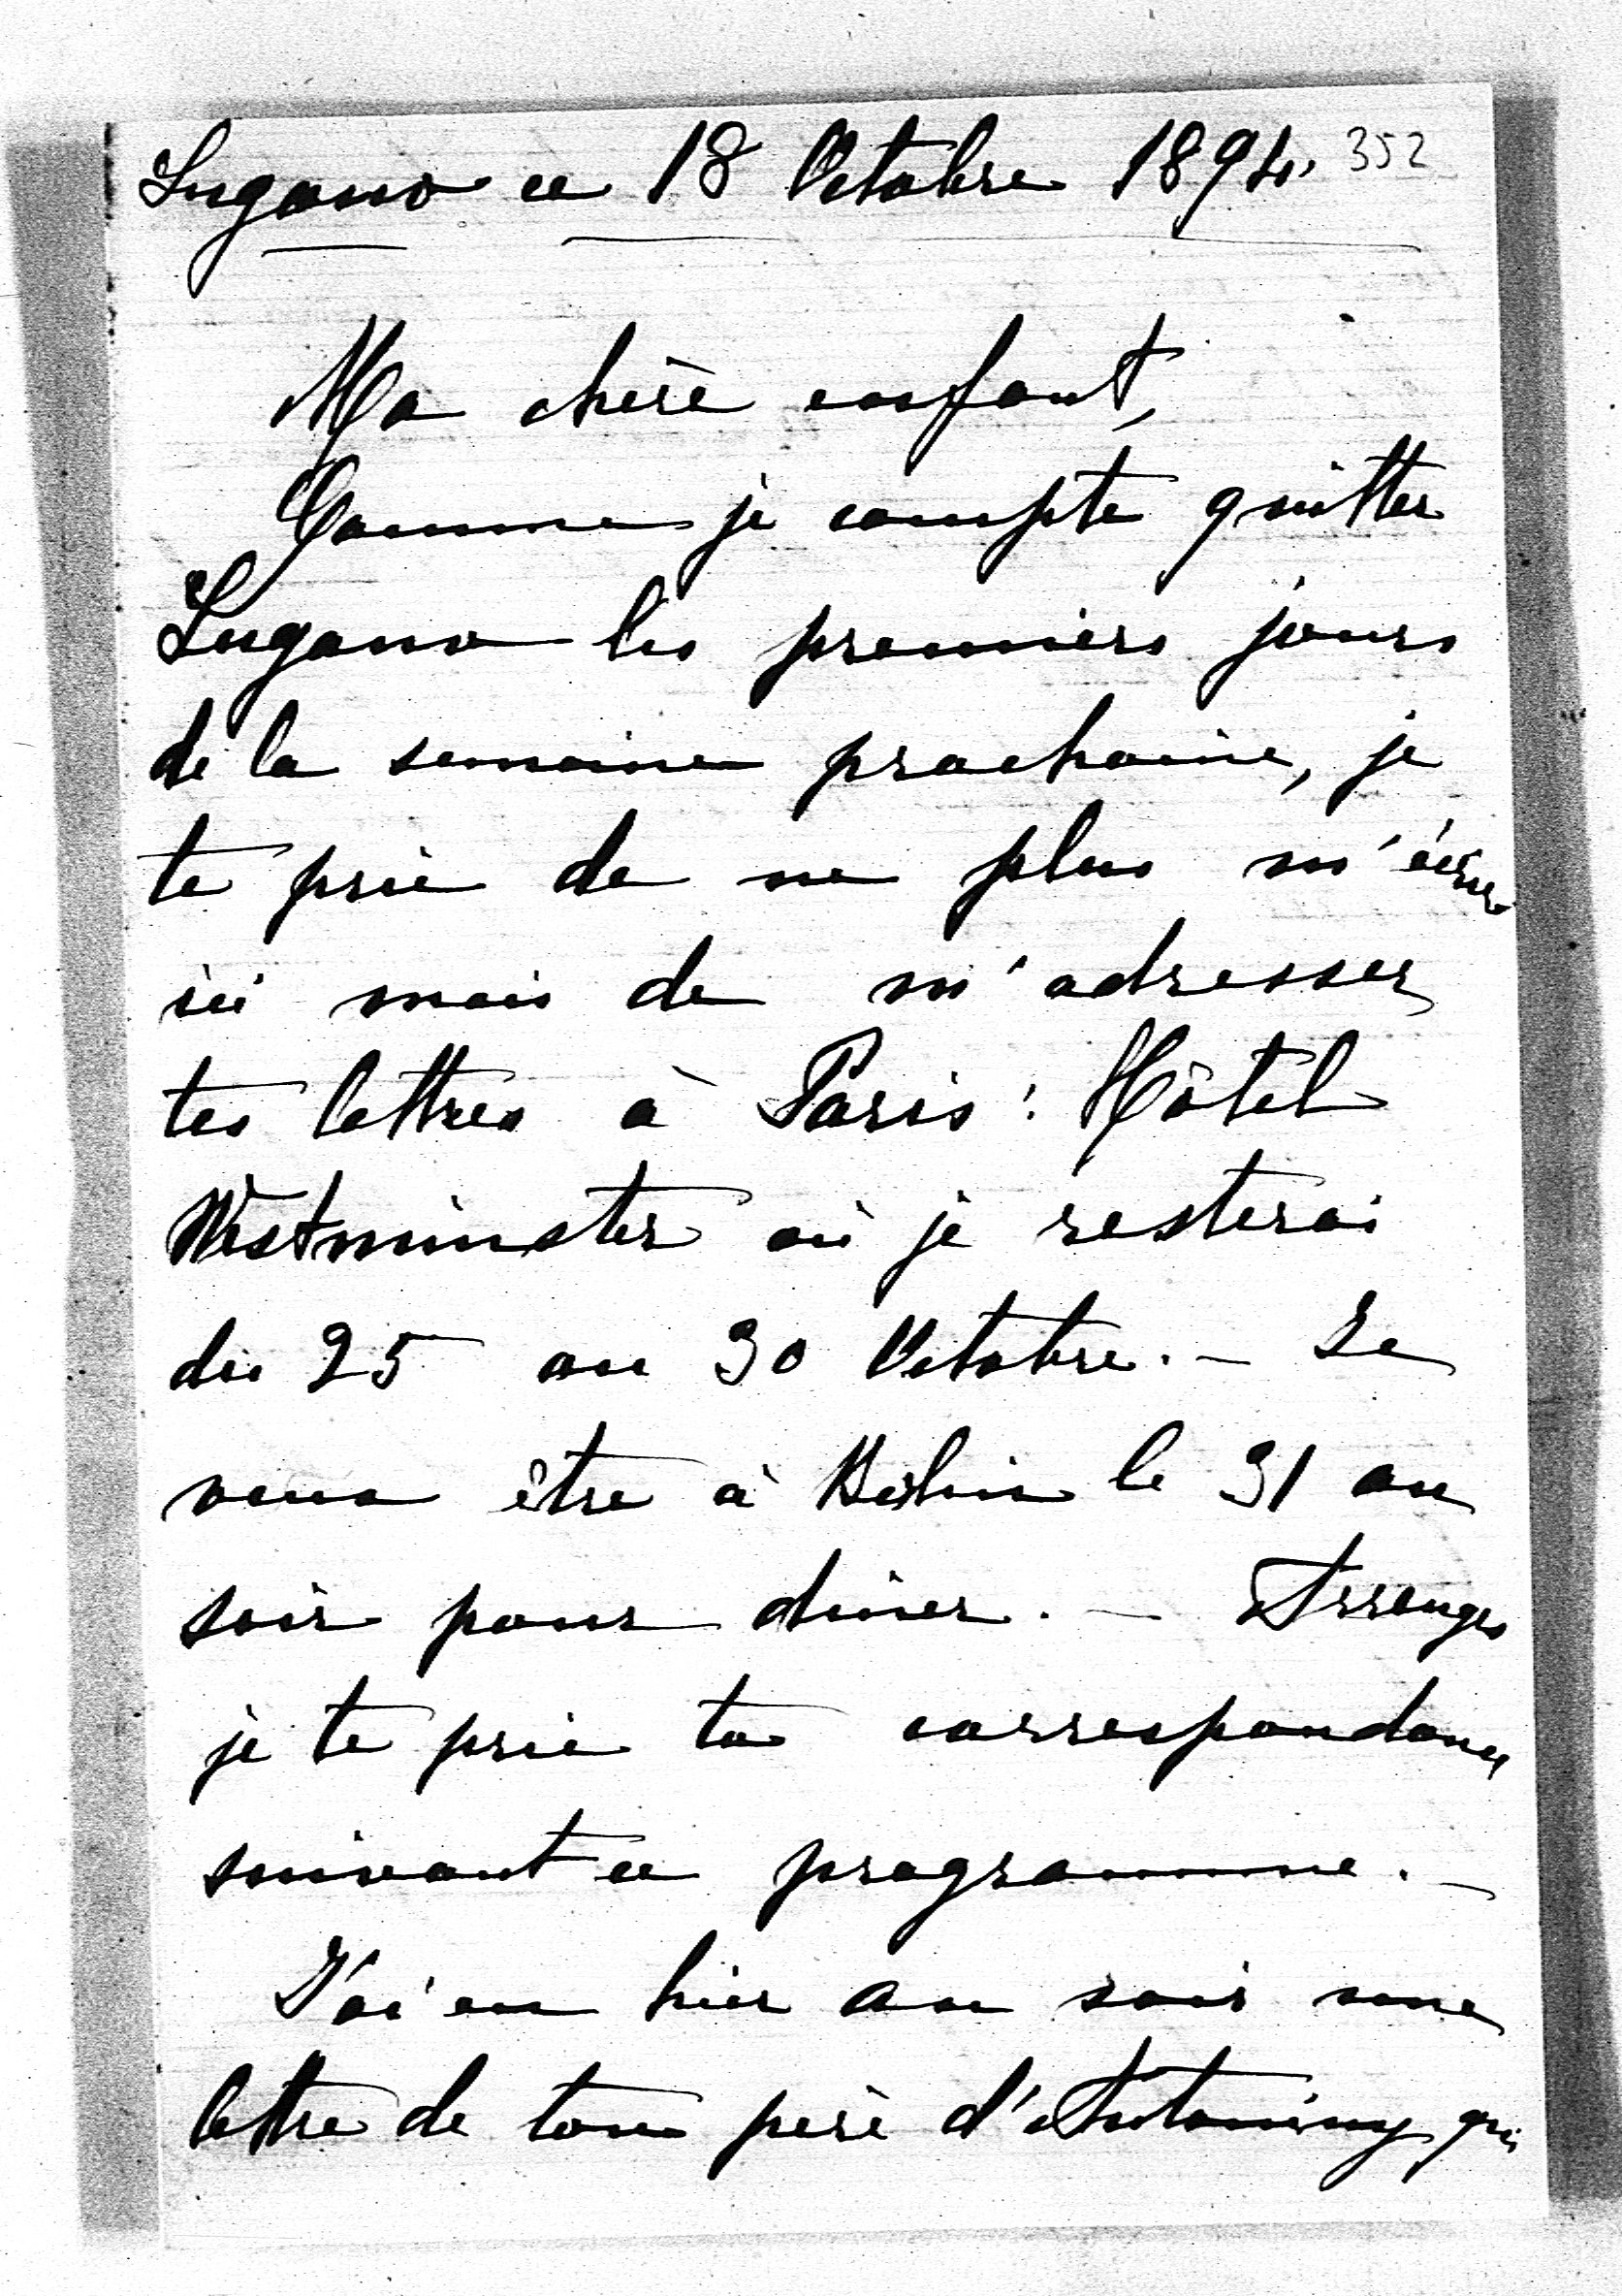 Lugano ce 18 Octobre 1894. 352
Ma chère enfant,
Comme je compte quitter
Lugano les premiers jours
de la semaine prochaine, je
te prie de ne plus m'écrire
ici mais de m'adresser
tes lettres à Paris : Hôtel
Westminster où je resterai
du 25 au 30 Octobre. — Je
veux être à Berlin le 31 au
soir pour diner. — Arranges
je te prie ta correspondance
suivant ce programme. —
J'ai eu hier au soir une
lettre de ton père d'Antoniny qui